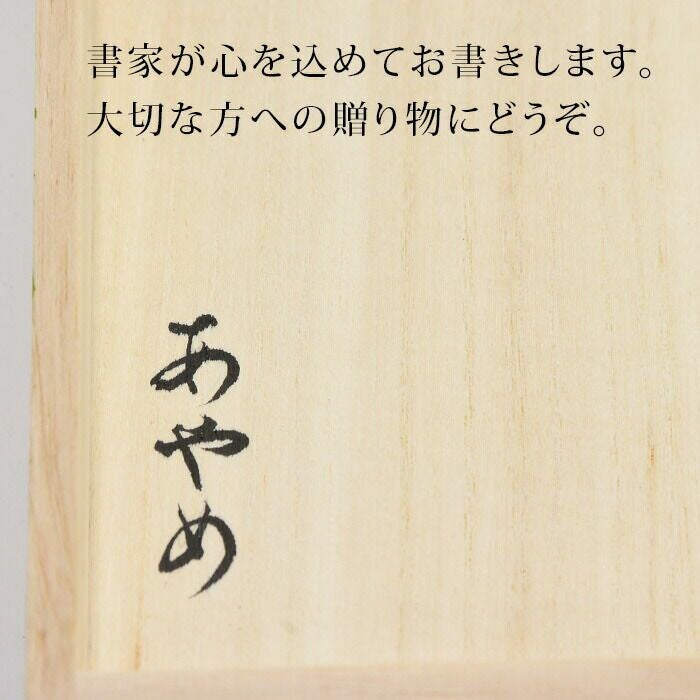 書家が心を込めてお書きします。
大切な方への贈り物にどうぞ。
あやめ